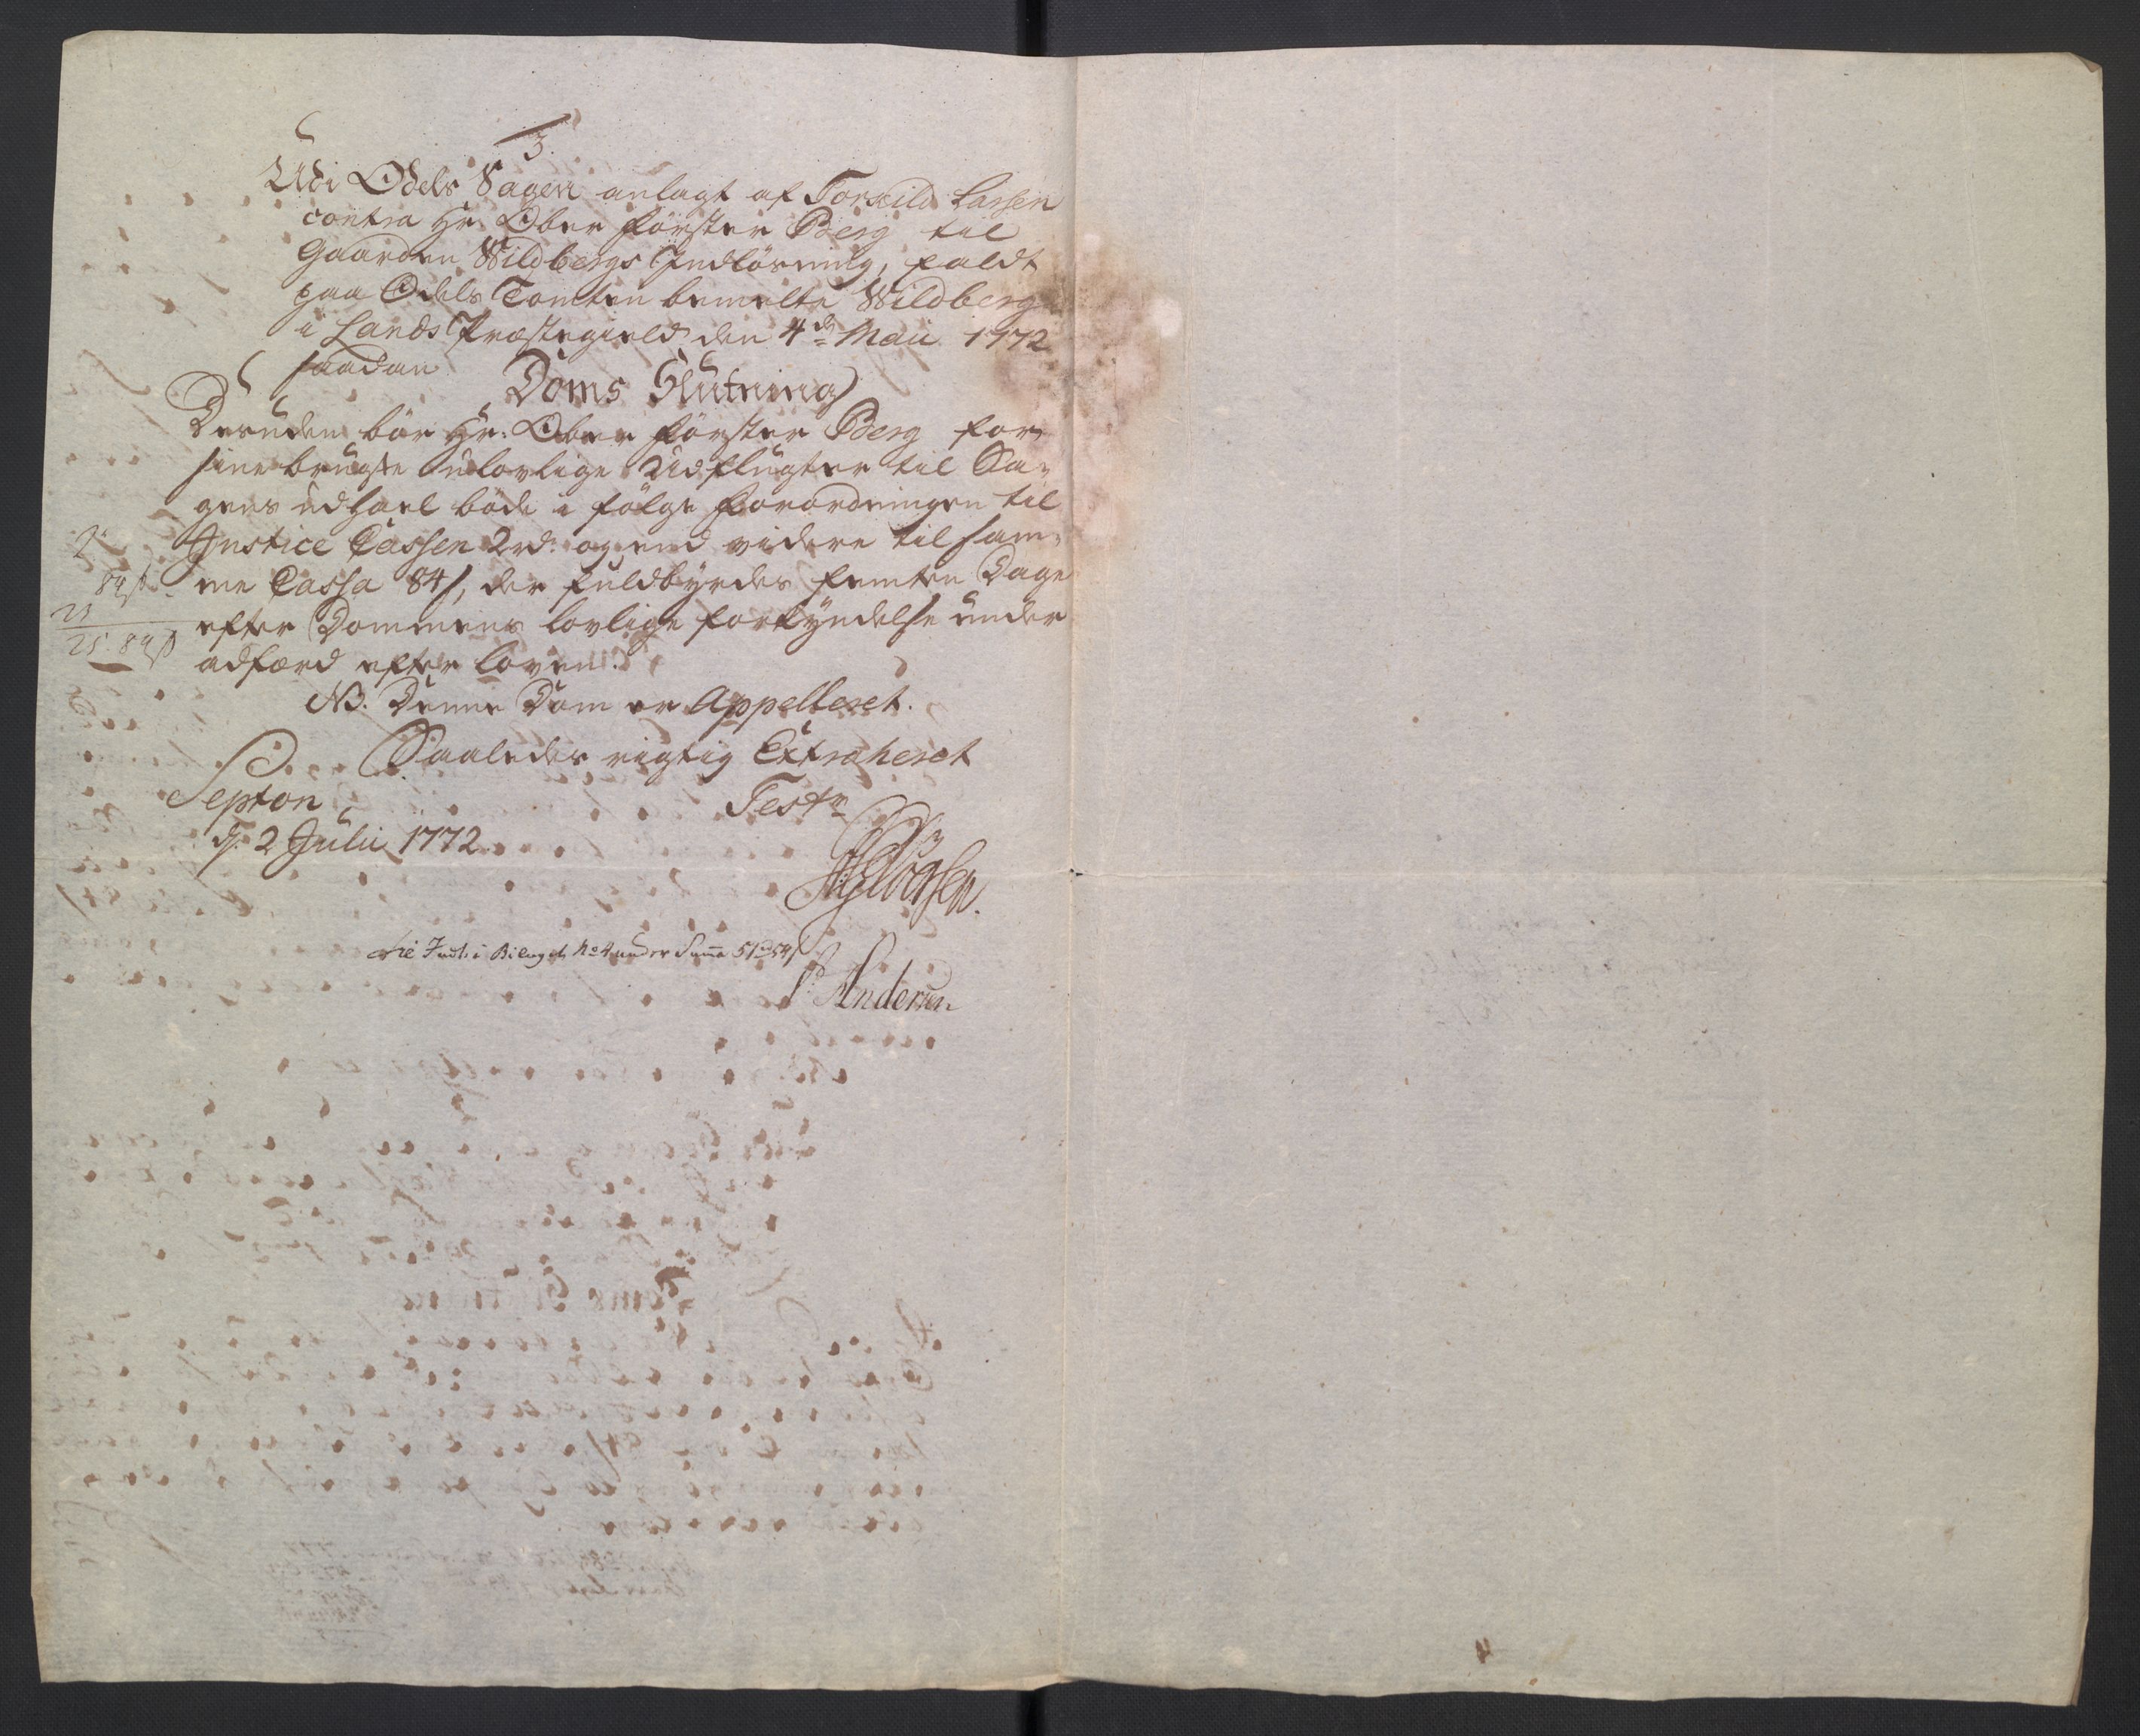 3.
Udi Odels Sagen anlagt af Torkild Larsen
contra Hr. Ober Förster Berg til
Gaarden Wildbergs Indlösning, faldt
paa Odels Tomten bemelte Wildberg
i Lands Præstegield den 4de Maii 1772
saadan
Doms Slutning
Desuden bör Hr: Ober Förster Berg for
sine brugte ulovlige Udflugter til Sa-
gens udhael böde i fölge Forordningen til
Justice Cassen 2rd: og end videre til sam-
me Cassa 84s, der fuldbyrdes femten Dage
efter Dommens lovlige forkyndelse under
adfærd efter loven.
2
84s
25. 84s
NB. Denne Dom er Appelleret.
Saaledes rigtig Extraheret
Septon
Test
d: 2 Julii 1772.
i Bilaget No 4 under Suma 51rd 54s
Andersen
4